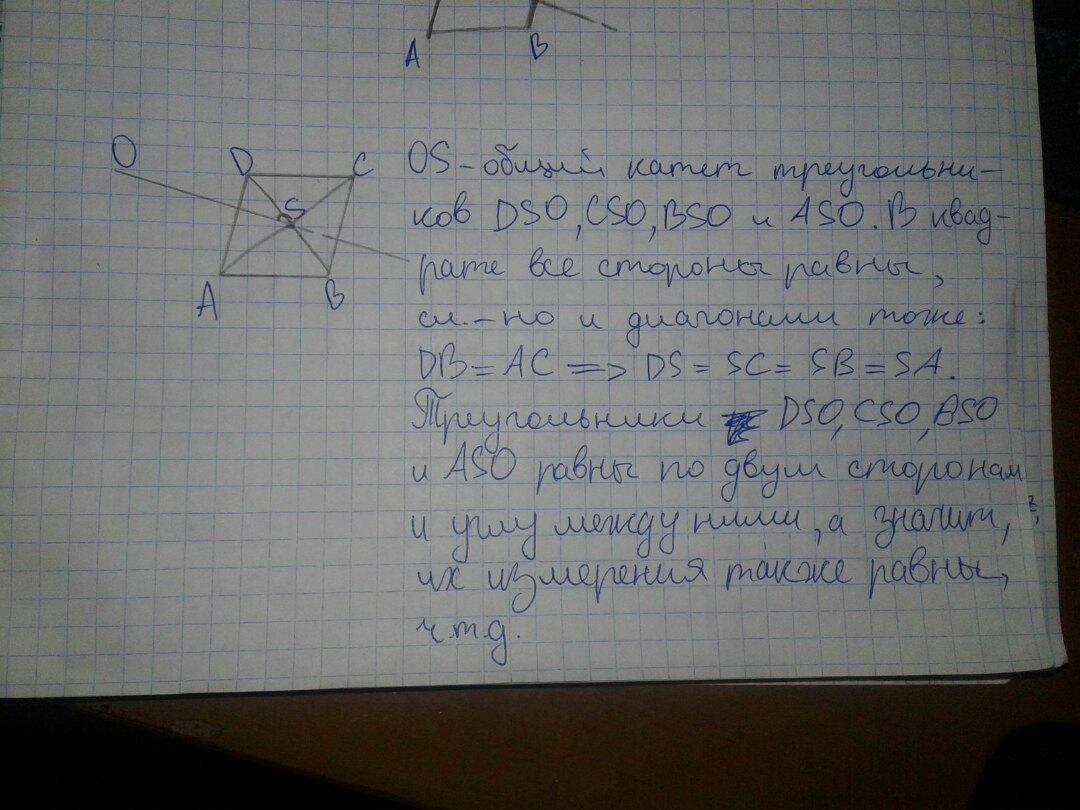 A B
O D C
S
A B
OS - общий катет треугольни-
ков DSO, CSO, BSO и ASO. В квад-
рате все стороны равны,
сл.-но и диагонали тоже:
DB = AC => DS = SC = SB = SA.
Треугольники DSO, CSO, BSO
и ASO равны по двум сторонам
и углу между ними, а значит,
их измерения также равны,
ч.т.д.